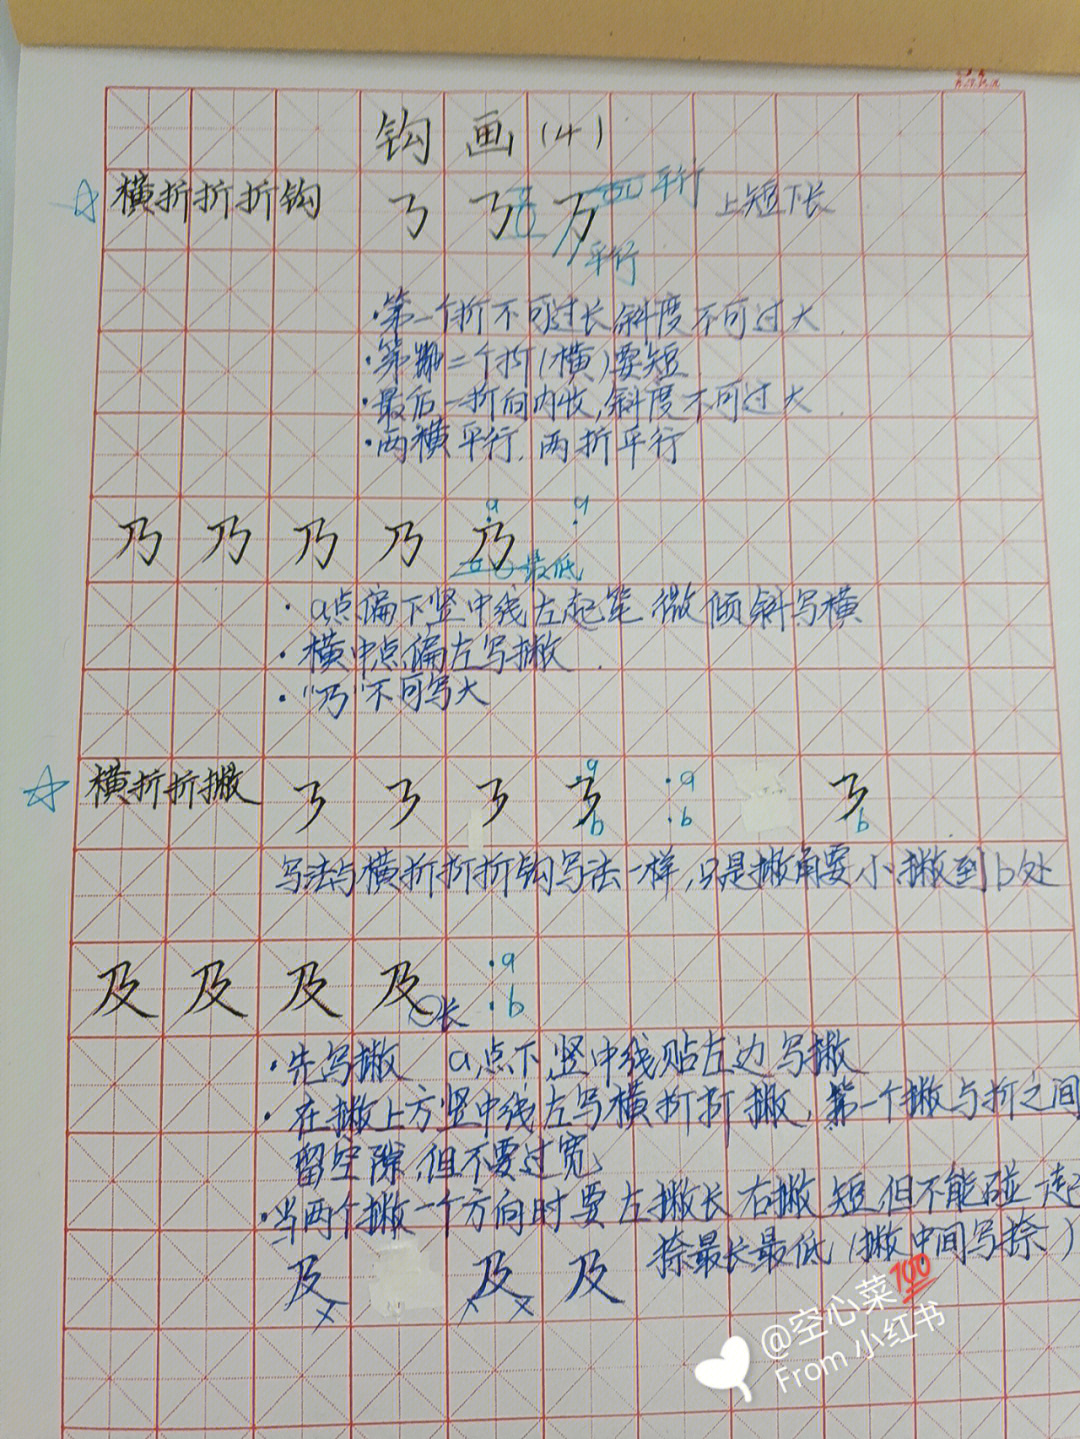 钩画(4)
☆横折折折钩 ㄋ ㄋ 万 平行 上短下长
平行
·第一个折不可过长,斜度不可过大.
·第二个折(横)要短
·最后一折向内收,斜度不可过大.
·两横平行.两折平行
a a
乃 乃 乃 乃 乃
最低
·a点偏下竖中线左起笔 微倾斜写横
·横中点偏左写撇.
·"乃"不可写大
☆横折折撇 ㄋ ㄋ ㄋ ㄋ a b ·a ·b ㄋ b
写法与横折折折钩写法一样,只是撇角要小.撇到b处
及 及 及 及 长 ·a ·b
·先写撇 a点下,竖中线贴左边写撇
·在撇上方竖中线左写横折折撇,第一个撇与折之间
留空隙,但不要过宽
·当两个撇一个方向时要左撇长 右撇短,但不能碰一起
捺最长最低(撇中间写捺)
及 × 及 × × 及
@空心菜💯
From 小红书